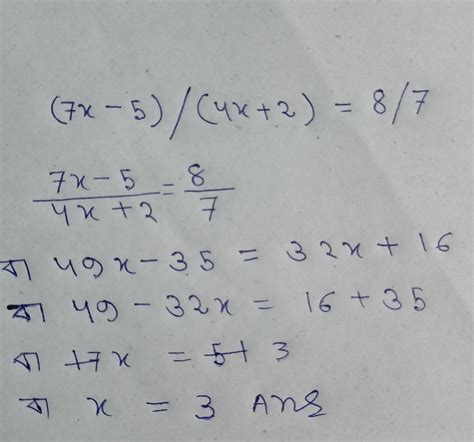 (7x-5)/(4x+2) = 8/7
7x-5/4x+2 = 8/7
বা 49x-35 = 32x+16
বা 49-32x = 16+35
বা 17x = 51 3
বা x = 3 Ans